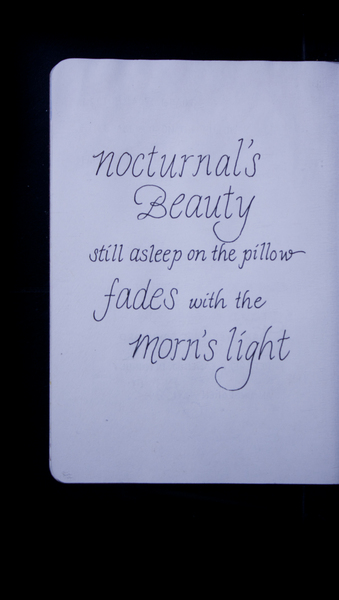 nocturnal's
Beauty
still asleep on the pillow
fades with the
morn's light